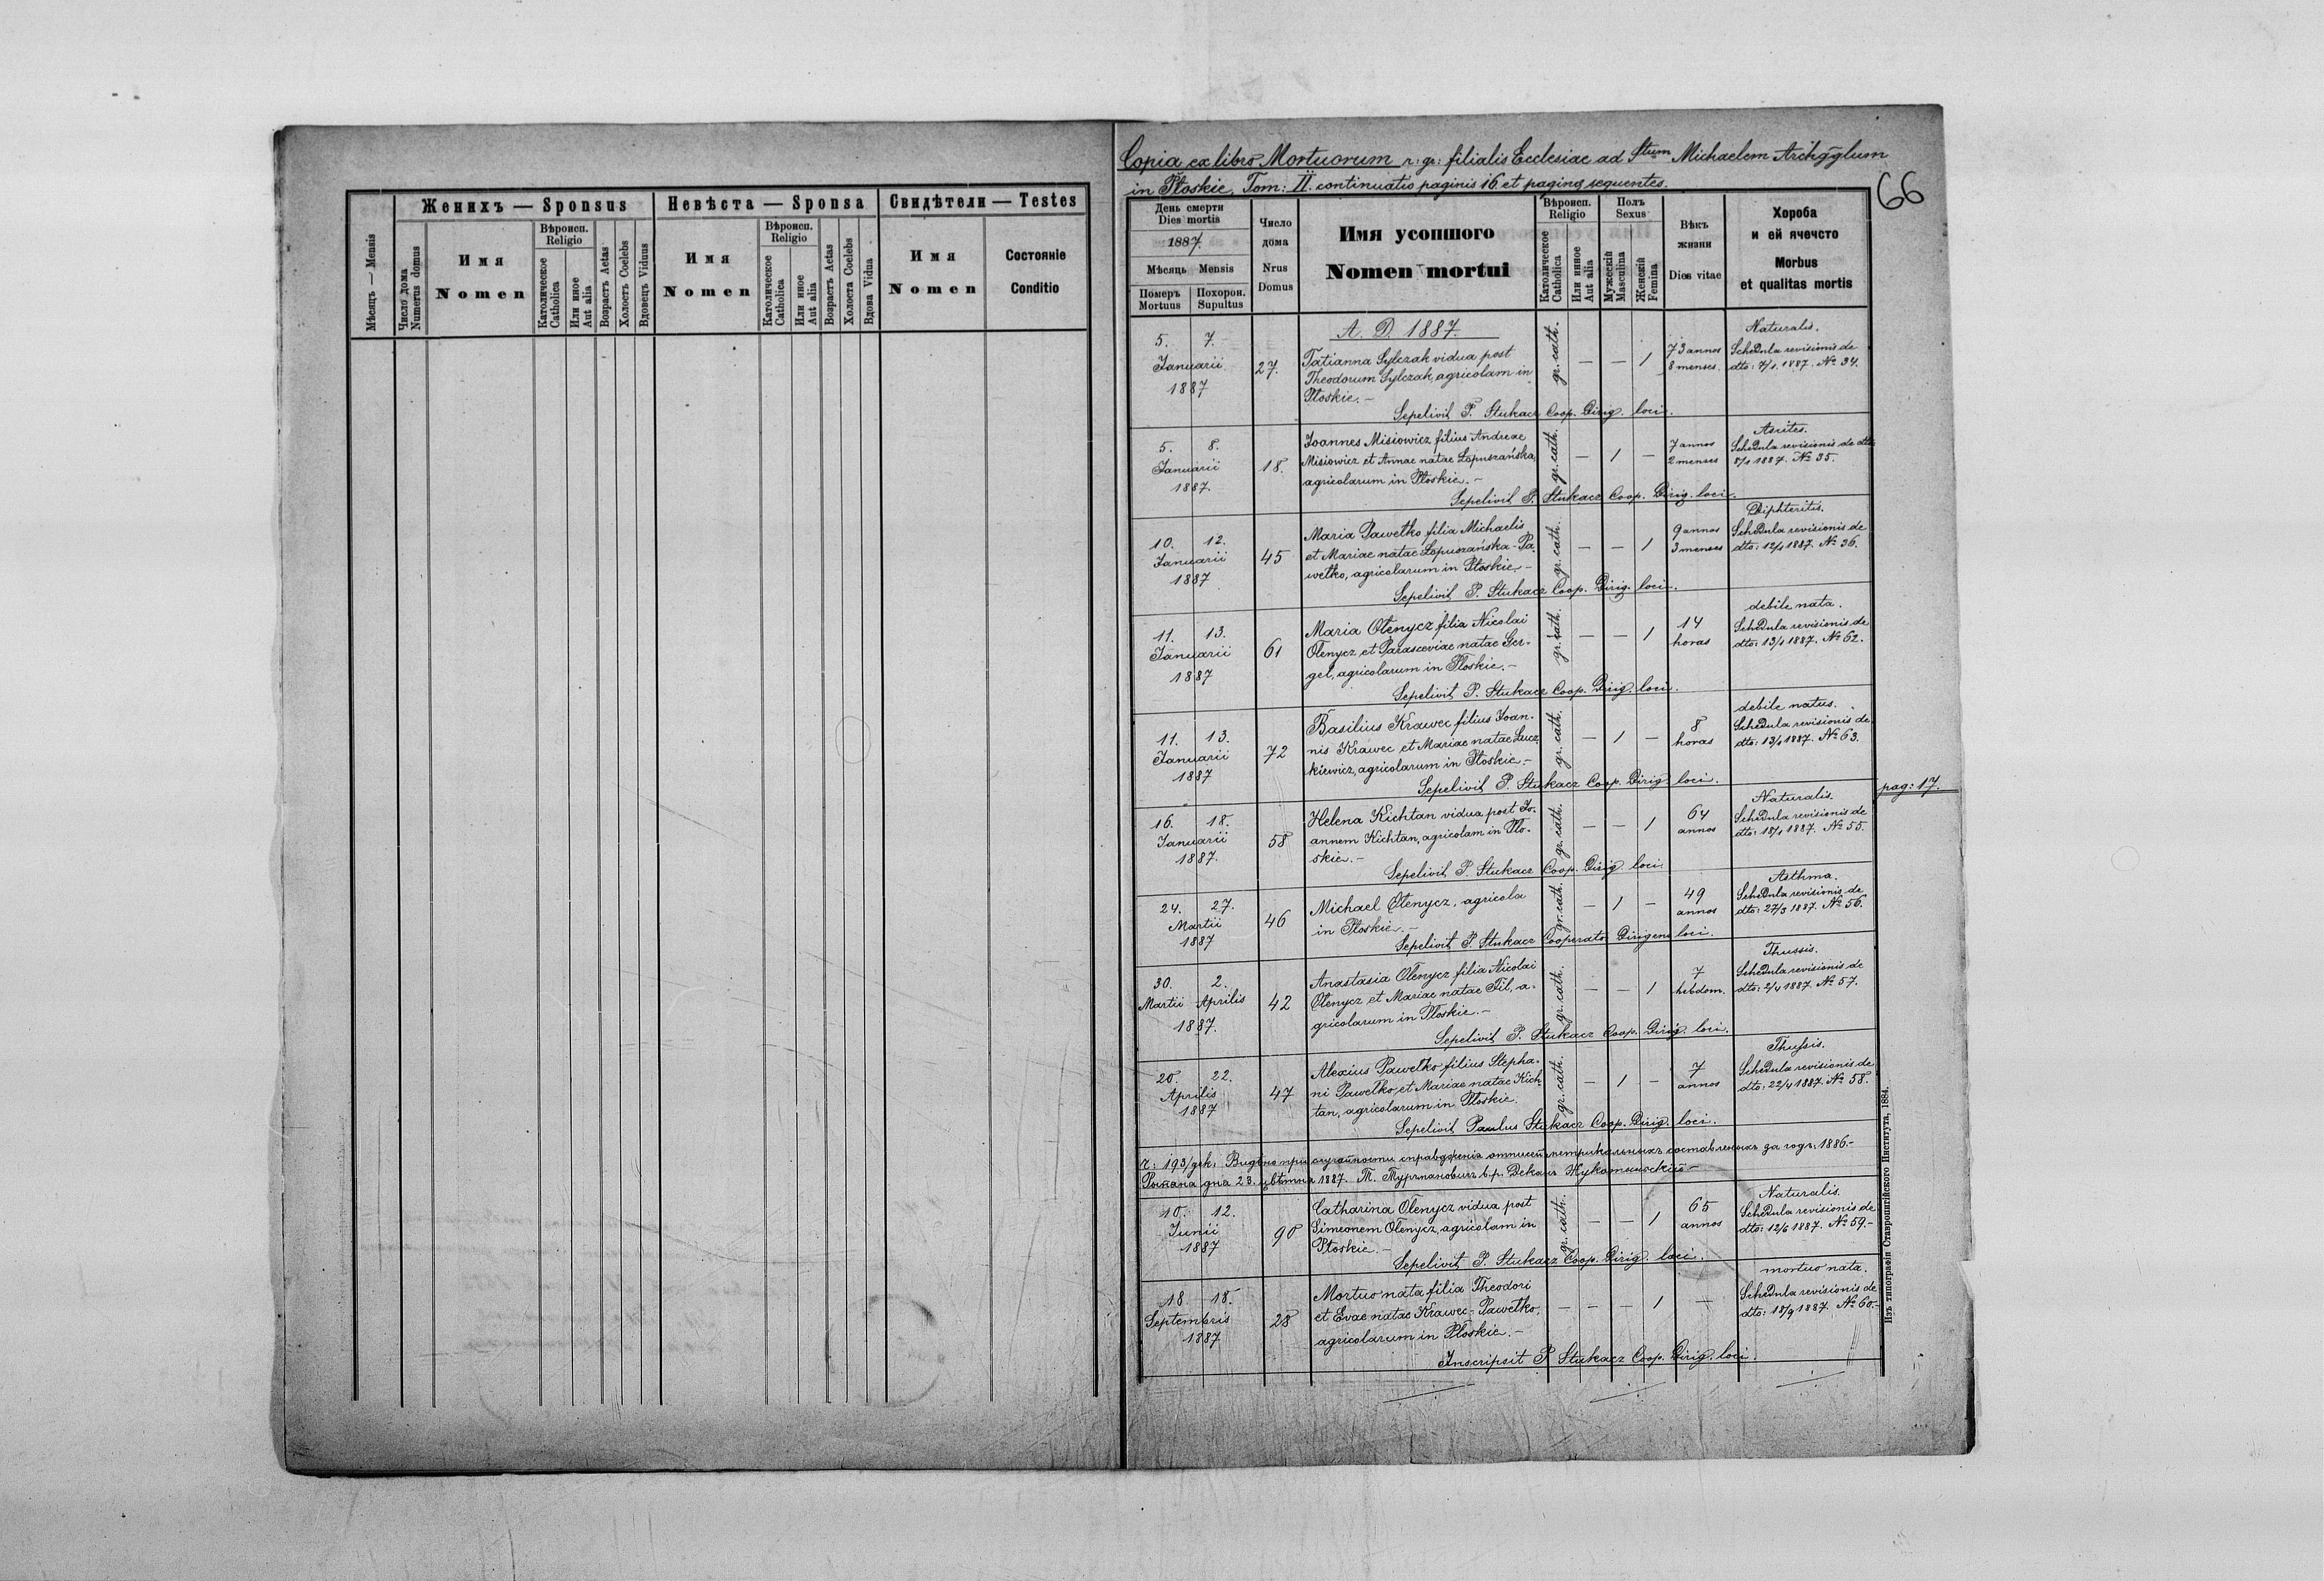 Женихъ — Sponsus
Невѣста — Sponsa
Свидѣтели — Testes
Мѣсяцъ — Mensis
Число дома
Numerus domus
Имя
Nomen
Вѣроисп.
Religio
Католическое
Catholica
Или иное
Aut alia
Возрастъ Aetas
Холостъ Coelebs
Вдовецъ Viduus
Имя
Nomen
Вѣроисп.
Religio
Католическое
Catholica
Или иное
Aut alia
Возрастъ Aetas
Холоста Coelebs
Вдова Vidua
Имя
Nomen
Состояніе
Conditio
Copia ex libro Mortuorum r: gr: filialis Ecclesiae ad Stum Michaelem Archglum
in Płoskie, Tom: II. continuatio paginis 16 et pagines sequentes.
66
День смерти
Dies mortis
1887.
Мѣсяць Mensis
Померъ
Mortuus
Похорон.
Supultus
Число
дома
Nrus
Domus
Имя усопшого
Nomen mortui
Вѣроисп.
Religio
Католическое
Catholica
Или инное
Aut alia
Полъ
Sexus
Мужескій
Masculina
Женскій
Femina
Вѣкъ
жизни
Dies vitae
Хороба
и ей ячечсто
Morbus
et qualitas mortis
A. D. 1887.
5. 7.
Januarii
1887
27.
Tatianna Sylczak vidua post
Theodorum Sylczak, agricolam in
Płoskie. –
gr. cath.
— — 1
73 annos
8 menses.
Naturalis.
Schedula revisionis de
dto: 7/1. 1887. № 34.
Sepelivit P. Stukacz Coop. Dirig. loci.
5. 8.
Januarii
1887.
18.
Joannes Misiowicz filius Andreae
Misiowicz et Annae natae Łopuszańska,
agricolarum in Płoskie. –
gr. cath.
— 1 —
7 annos
2 menses
Ascites.
Schedula revisionis de dto:
8/1 1887. № 35.
Sepelivit P. Stukacz Coop. Dirig. loci.
10. 12.
Januarii
1887
45
Maria Pawełko filia Michaelis
et Mariae natae Łopuszańska - Pa-
wełko, agricolarum in Płoskie. –
gr. cath.
— — 1
9 annos
3 menses
Diphteritis.
Schedula revisionis de
dto: 12/1 1887. № 36.
Sepelivit P. Stukacz Coop. Dirig. loci.
11. 13.
Januarii
1887
61
Maria Ołenycz filia Nicolai
Ołenycz et Parasceviae natae Ger-
gel, agricolarum in Płoskie. –
gr. cath.
— — 1
14
horas
debile nata.
Schedula revisionis de
dto: 13/1 1887. № 62.
Sepelivit P. Stukacz Coop. Dirig. loci.
11. 13.
Januarii
1887
72
Basilius Krawec filius Joan-
nis Krawec et Mariae natae Łucz-
kiewicz, agricolarum in Płoskie –
gr. cath.
— 1 —
8
horas
debile natus.
Schedula revisionis de
dto: 13/1 1887. № 63.
Sepelivit P. Stukacz Coop. Dirig. loci.
pag: 17.
16. 18.
Januarii
1887.
58
Helena Kichtan vidua post Jo-
annem Kichtan, agricolam in Pło-
skie. –
gr. cath.
— — 1
64
annos
Naturalis.
Schedula revisionis de
dto: 18/1 1887. № 55.
Sepelivit P. Stukacz Coop. Dirig. loci.
24. 27.
Martii
1887
46
Michael Ołenycz, agricola
in Płoskie. –
gr. cath.
— 1 —
49
annos
Asthma.
Schedula revisionis de
dto: 27/3 1887. № 56.
Sepelivit P. Stukacz Cooperator Dirigens loci.
30. 2.
Martii Aprilis
1887.
42
Anastasia Ołenycz filia Nicolai
Ołenycz et Mariae natae Fil, a-
gricolarum in Płoskie. –
gr. cath.
— — 1
7
hebdom.
Thussis.
Schedula revisionis de
dto: 2/4 1887. № 57.
Sepelivit P. Stukacz Coop. Dirig. loci.
20. 22.
Aprilis
1887
47
Alexius Pawełko filius Stepha-
ni Pawełko et Mariae natae Kich-
tan, agricolarum in Płoskie.
gr. cath.
— 1 —
7
annos
Thussis.
Schedula revisionis de
dto: 22/4 1887. № 58.
Sepelivit Paulus Stukacz Coop. Dirig. loci.
Ч: 193/дек: Видѣно при случайности справдженія отписей метрикальныхъ составленыхъ за годъ 1886. –
дня 23. цвѣтня 1887. Т. Турчмановичъ в. р. Деканъ
10. 12.
Junii
1887
90
Catharina Ołenycz vidua post
Simeonem Ołenycz, agricolam in
Płoskie. –
gr. cath.
— — 1
65
annos
Naturalis.
Schedula revisionis de
dto: 12/6 1887. № 59. –
Sepelivit P. Stukacz Coop. Dirig. loci.
18 18.
Septembris
1887
28
Mortuo nata filia Theodori
et Evae natae Krawec - Pawełko,
agricolarum in Płoskie. –
— — — 1 —
mortuo nata.
Schedula revisionis de
dto: 18/9 1887. № 60. –
Inscripsit P. Stukacz Coop. Dirig. loci.
Изъ типографіи Ставропигійского Института, 1884.